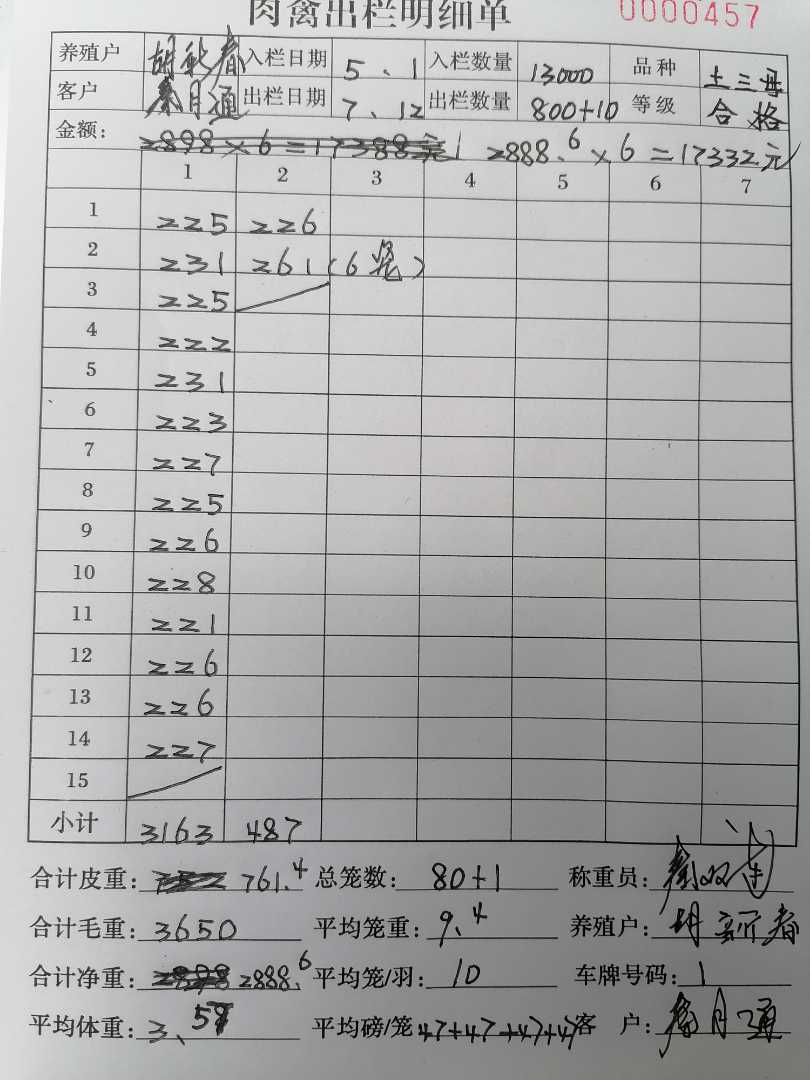 肉禽出栏明细单 0000457
养殖户 胡秋春 入栏日期 5、1 入栏数量 13000 品种 土三母
客户 秦月通 出栏日期 7、12 出栏数量 800+10 等级 合格
金额: 2898×6=17388元 2888.6×6=17332元
1 2 3 4 5 6 7
1 225 226
2 231 261(6笼)
3 225
4 222
5 231
6 223
7 227
8 225
9 226
10 228
11 221
12 226
13 226
14 227
15
小计 3163 487
合计皮重: 761.4 总笼数: 80+1 称重员:
合计毛重: 3650 平均笼重: 9.4 养殖户: 胡新春
合计净重: 2898 2888.6 平均笼/羽: 10 车牌号码: 1
平均体重: 3、57 平均磅/笼 47+47+47+47 客户: 秦月通